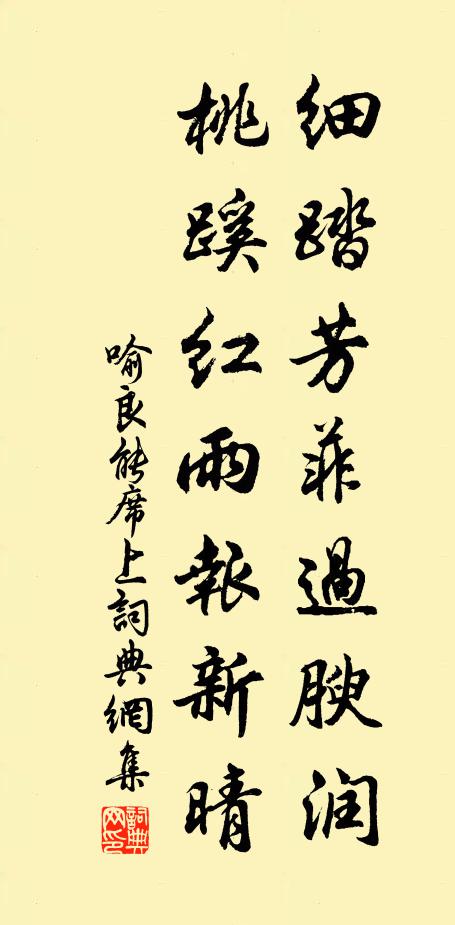 細踏芳菲過腴润
桃蹊红雨報新晴
喻良能席上詞典網集
詞典网印